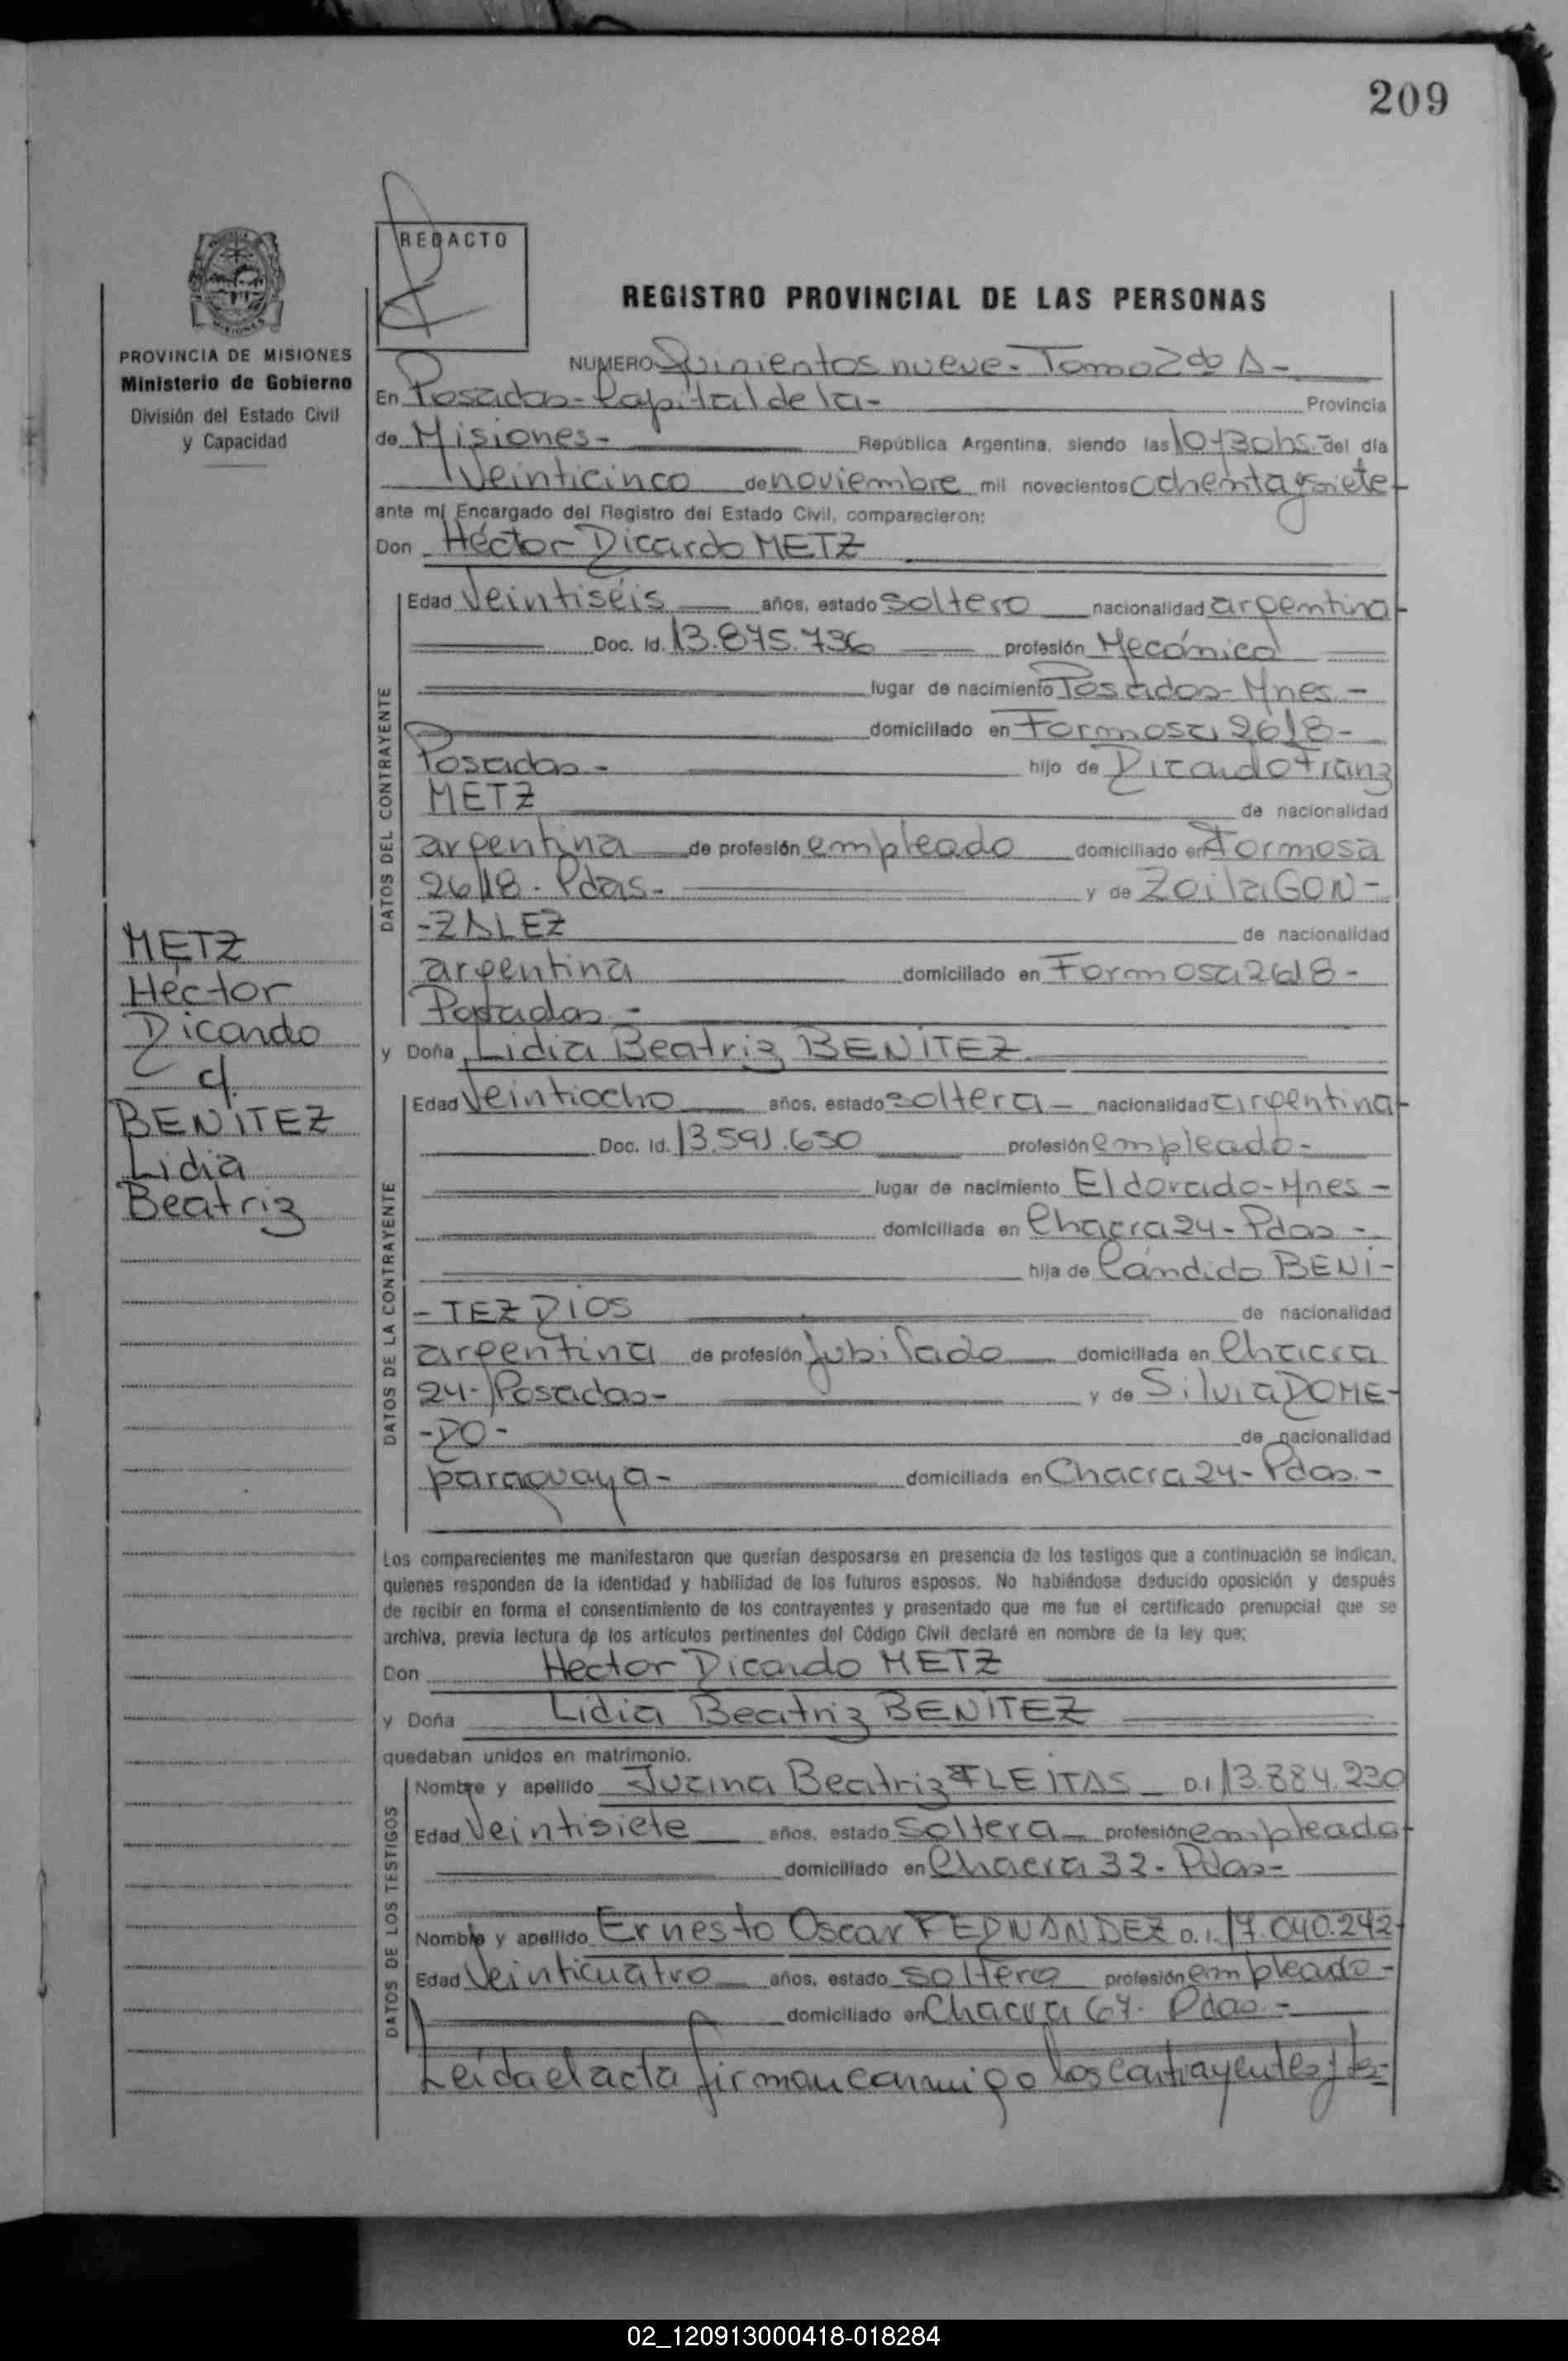 209
REDACTO
REGISTRO PROVINCIAL DE LAS PERSONAS
PROVINCIA DE MISIONES
Ministerio de Gobierno
División del Estado Civil
y Capacidad
NUMERO Quinientos nueve - Tomo 2do A -
En Posadas - Capital de la - Provincia
de Misiones - República Argentina, siendo las 10,30 hs. del día
Veinticinco de noviembre mil novecientos ochenta y siete -
ante mí Encargado del Registro del Estado Civil, comparecieron:
Don Héctor Ricardo METZ
DATOS DEL CONTRAYENTE
Edad Veintiséis años, estado soltero nacionalidad argentina -
Doc. Id. 13.875.736 profesión Mecánico
lugar de nacimiento Posadas - Mnes -
domiciliado en Formosa 2618 -
Posadas - hijo de Ricardo Franz
METZ de nacionalidad
argentina de profesión empleado domiciliado en Formosa
2618 - Pdas - y de Zoila GON -
- ZALEZ de nacionalidad
argentina domiciliado en Formosa 2618 -
Posadas -
METZ
Héctor
Ricardo
c/.
BENITEZ
Lidia
Beatriz
y Doña Lidia Beatriz BENITEZ
DATOS DE LA CONTRAYENTE
Edad Veintiocho años, estado soltera - nacionalidad argentina -
Doc. Id. 13.591.650 profesión empleado -
lugar de nacimiento Eldorado - Mnes -
domiciliada en Chacra 24 - Pdas -
hija de Cándido BENI -
- TEZ RIOS de nacionalidad
argentina de profesión Jubilado domiciliada en Chacra
24 - Posadas - y de Silvia ROME -
- RO - de nacionalidad
paraguaya - domiciliada en Chacra 24 - Pdas. -
Los comparecientes me manifestaron que querían desposarse en presencia de los testigos que a continuación se indican,
quienes responden de la identidad y habilidad de los futuros esposos. No habiéndose deducido oposición y después
de recibir en forma el consentimiento de los contrayentes y presentado que me fue el certificado prenupcial que se
archiva, previa lectura de los artículos pertinentes del Código Civil declaré en nombre de la ley que:
Don Hector Ricardo METZ
y Doña Lidia Beatriz BENITEZ
quedaban unidos en matrimonio.
DATOS DE LOS TESTIGOS
Nombre y apellido Beatriz FLEITAS D.I. 13.884.230
Edad Veintisiete años, estado Soltera - profesión empleada -
domiciliado en Chacra 32 - Pdas -
Nombre y apellido Ernesto Oscar FERNANDEZ D.I. 17.040.242 -
Edad Veinticuatro años, estado soltero profesión empleado -
domiciliado en Chacra 67 - Pdas. -
Leída el acta firman conmigo los contrayentes y los -
02_120913000418-018284